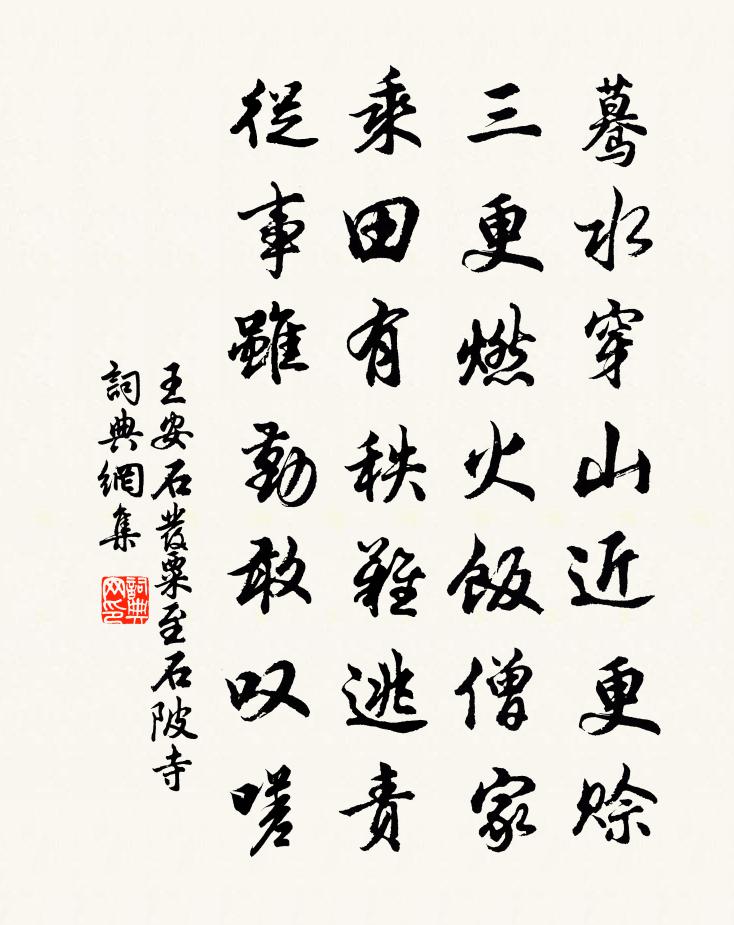 驀水穿山近更賖
三更燃火飯僧家
乘田有秩難逃責
從事雖勤敢叹嗟
王安石發粟至石陂寺
詞典網集
詞典
网印